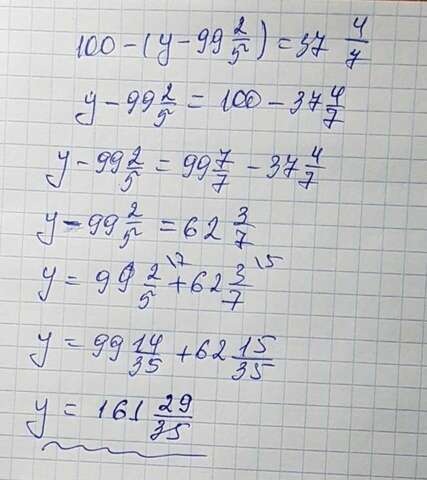 100 - (y - 99 2/5) = 37 4/7
y - 99 2/5 = 100 - 37 4/7
y - 99 2/5 = 99 7/7 - 37 4/7
y - 99 2/5 = 62 3/7
y = 99 2/5 \7 + 62 3/7 \5
y = 99 14/35 + 62 15/35
y = 161 29/35